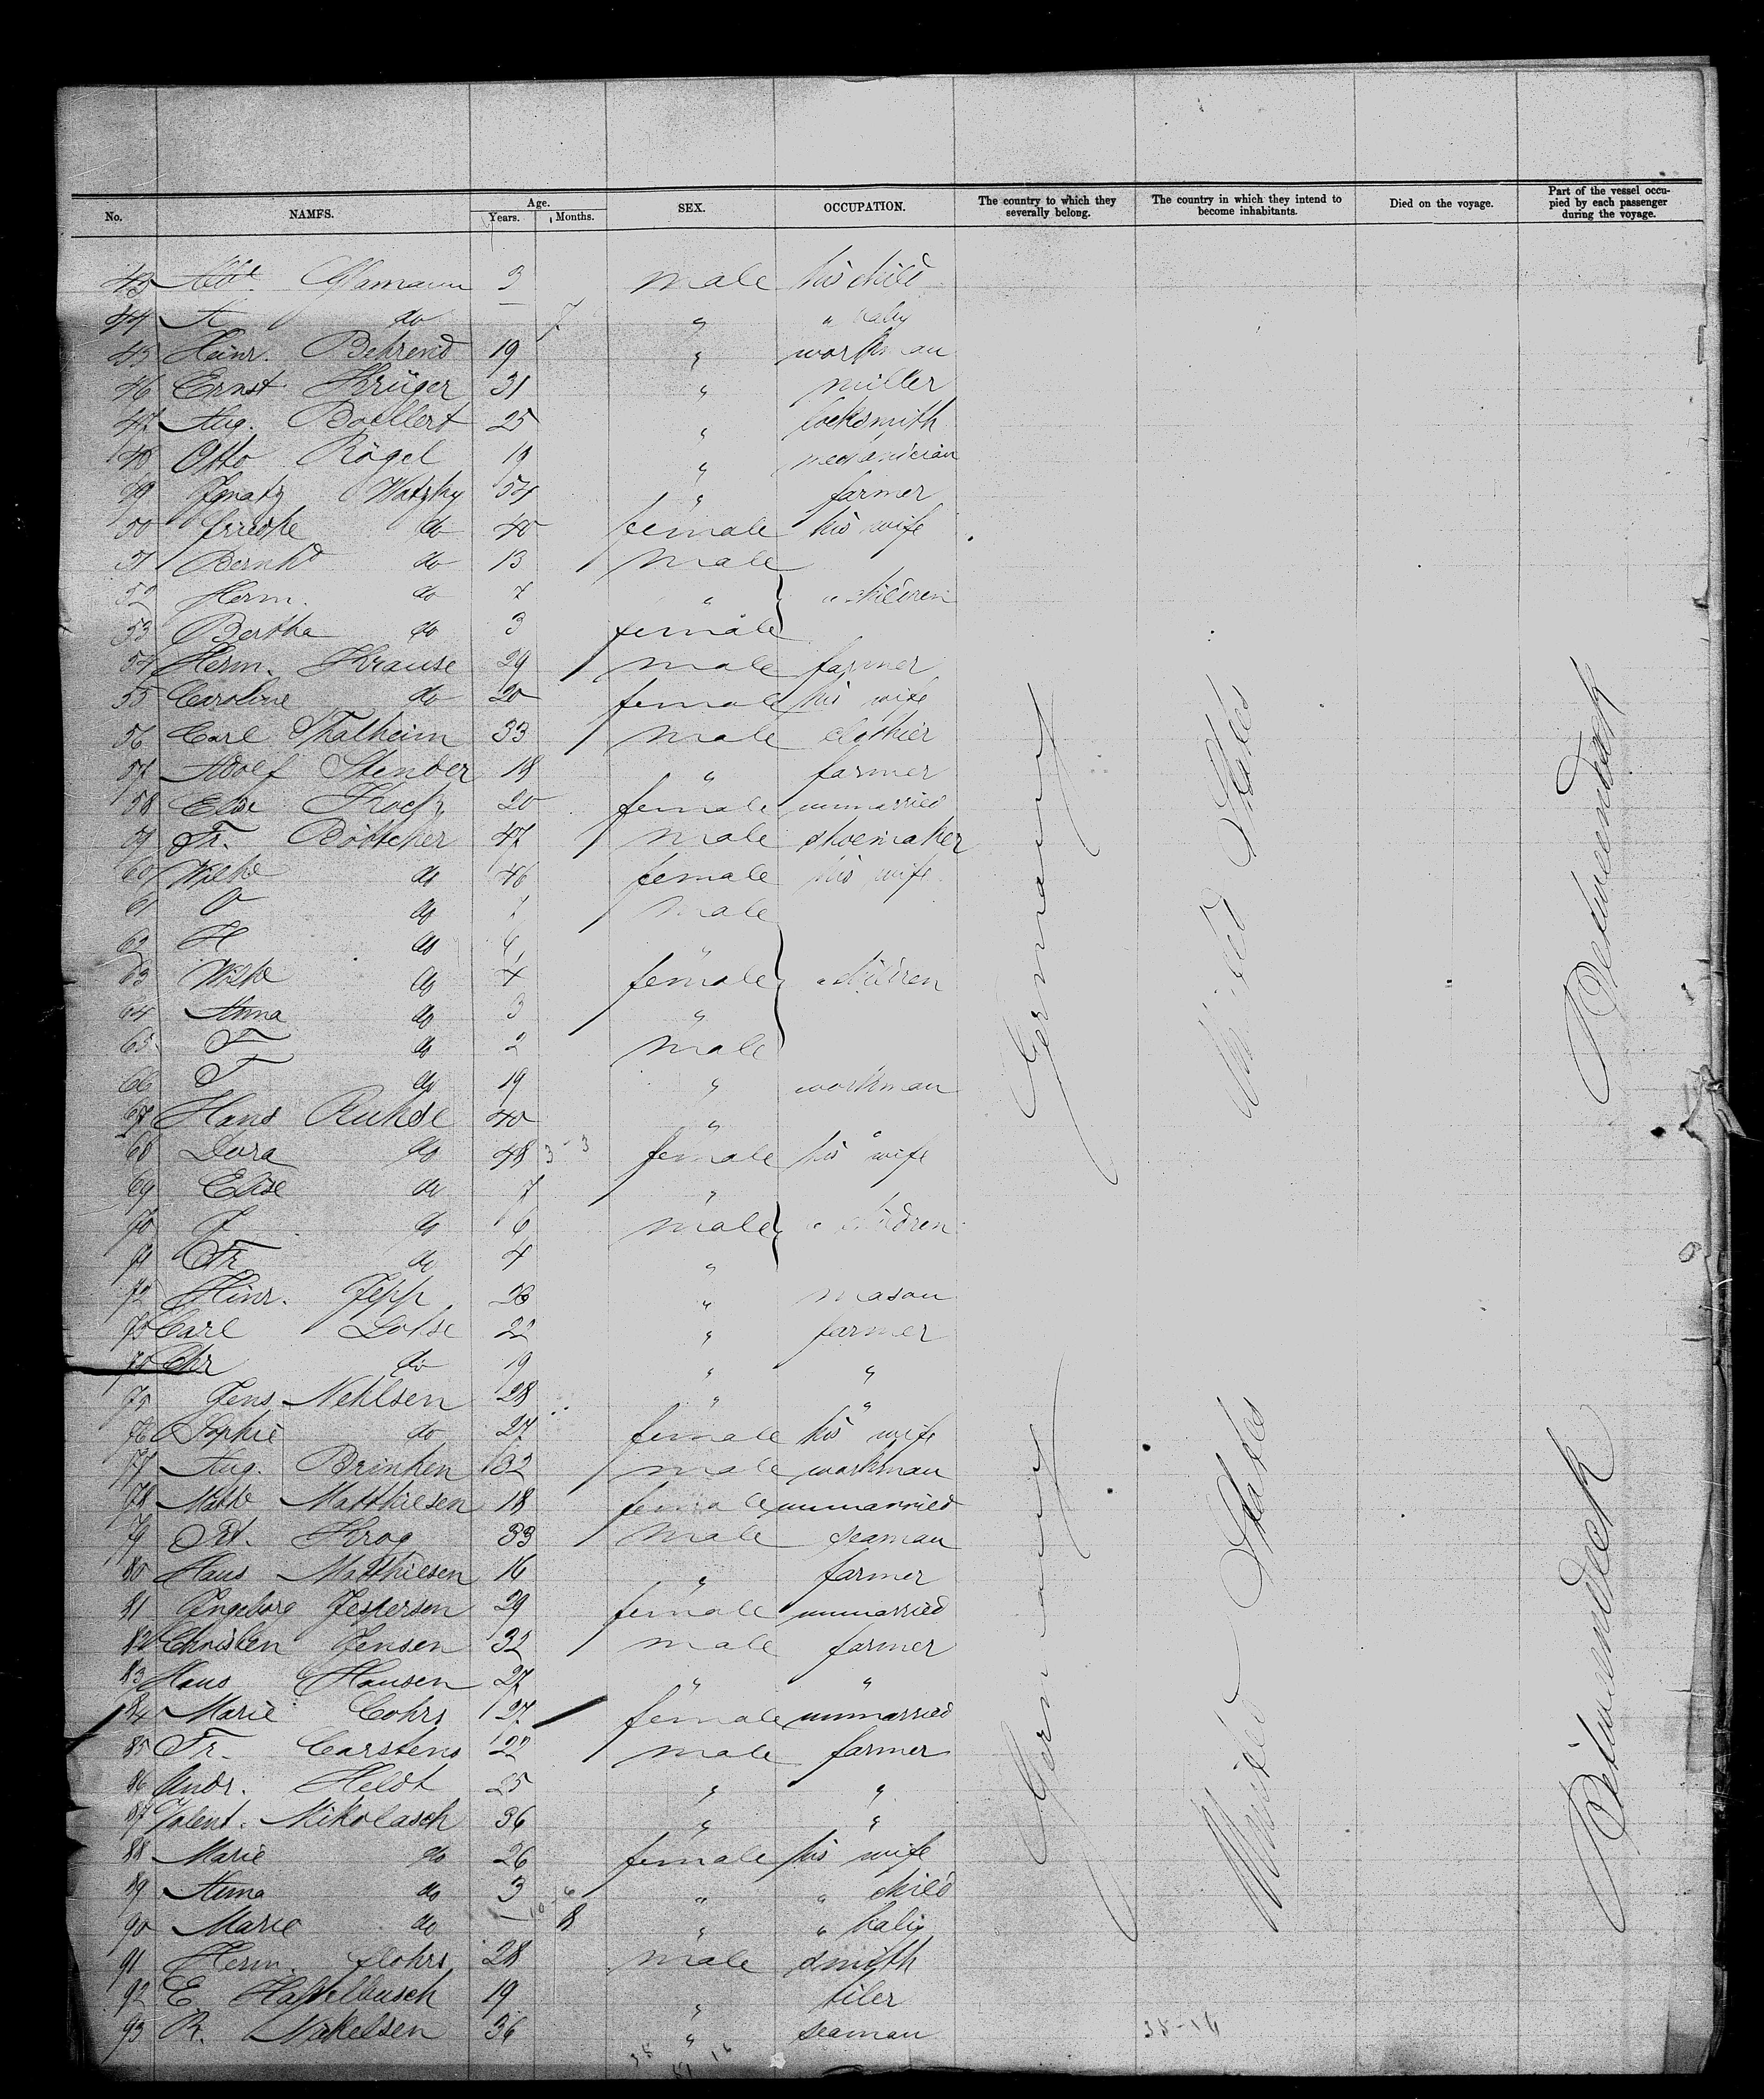 No. NAMES. Age. Years. Months. SEX. OCCUPATION. The country to which they severally belong. The country in which they intend to become inhabitants. Died on the voyage. Part of the vessel occupied by each passenger during the voyage.
43 3 male his child
44 A do — 7 " " baby
45 Heinr. Behrend 19 " workman
46 Ernst Krüger 31 " miller
47 Aug. Boellert 25 " locksmith
48 Otto Rögel 19 " mechanician
49 Ignatz Watzky 54 " farmer
50 Friedke do 40 female his wife
51 Bernhd do 13 male
52 Herm. do 7 " " children
53 Bertha do 3 female
54 Herm. Krause 29 male farmer
55 Caroline do 20 female his wife
56 Carl Thalheim 33 male clothier
57 Adolf Stender 18 " farmer
58 Else Kock 20 female unmarried
59 Fr. Böttcher 47 male shoemaker
60 Wilhe do 46 female his wife
61 O do male
62 H do "
63 Wilhe do 4 female " children
64 Anna do 3 "
65 F do 2 male
66 F do 19 " workman
67 Hans Ruhse 40 " "
68 Dora do 48 3 3 female his wife
69 Elise do 7 "
70 J do 6 male " children
71 Fr do 4 "
72 Hinr. Jepp 23 " mason
73 Carl Lohse 22 " farmer
74 Chr do 19 " "
75 Jens Nehlsen 28 " "
76 Sophie do 27 female his wife
77 Aug. Brinken 32 male workman
78 Mathe Matthiesen 18 female unmarried
79 Krog 33 male seaman
80 Hans Matthiesen 16 " farmer
81 Ingeborg Jespersen 29 female unmarried
82 Christen Jensen 32 male farmer
83 Hans Hansen 27 " "
84 Marie Cohrs 27 female unmarried
85 Fr. Carstens 22 male farmer
86 Andr. Heldt 25 " "
87 Valent. Mikolasch 36 " "
88 Marie do 26 female his wife
89 Anna do 3 " " child
90 Marie do — 8 " " baby
91 Herm. Clohrs 28 male smith
92 E. Hasselbusch 19 " tiler
93 R. Mikelsen 36 " seaman
Germany
United States
Betweendeck
Germany
United States
Betweendeck